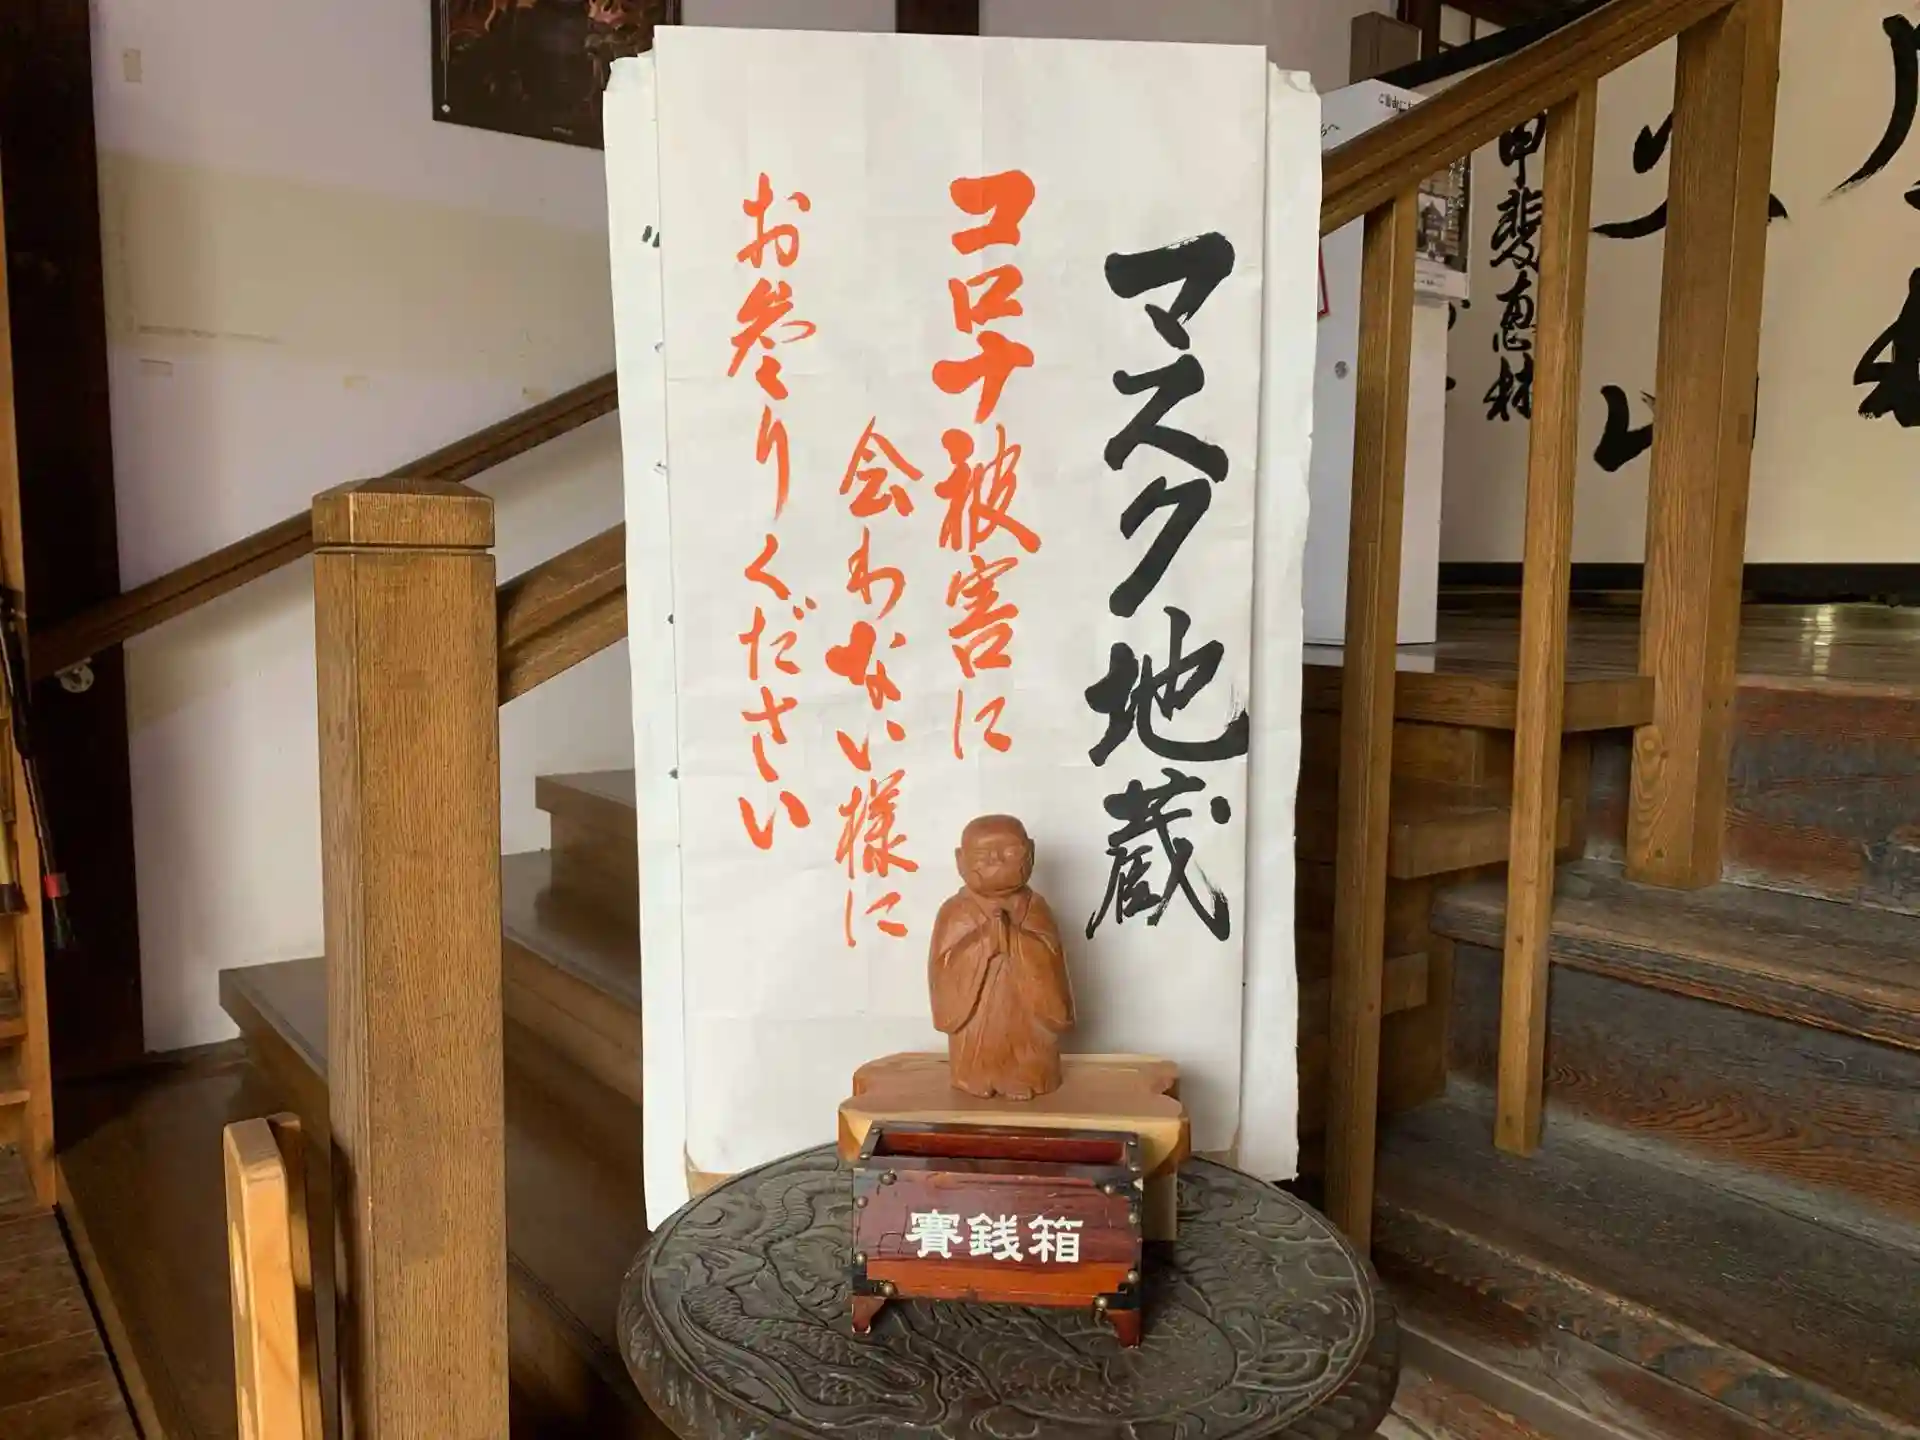 マスク地蔵
コロナ被害に
会わない様に
お参りください
賽銭箱
甲斐恵林